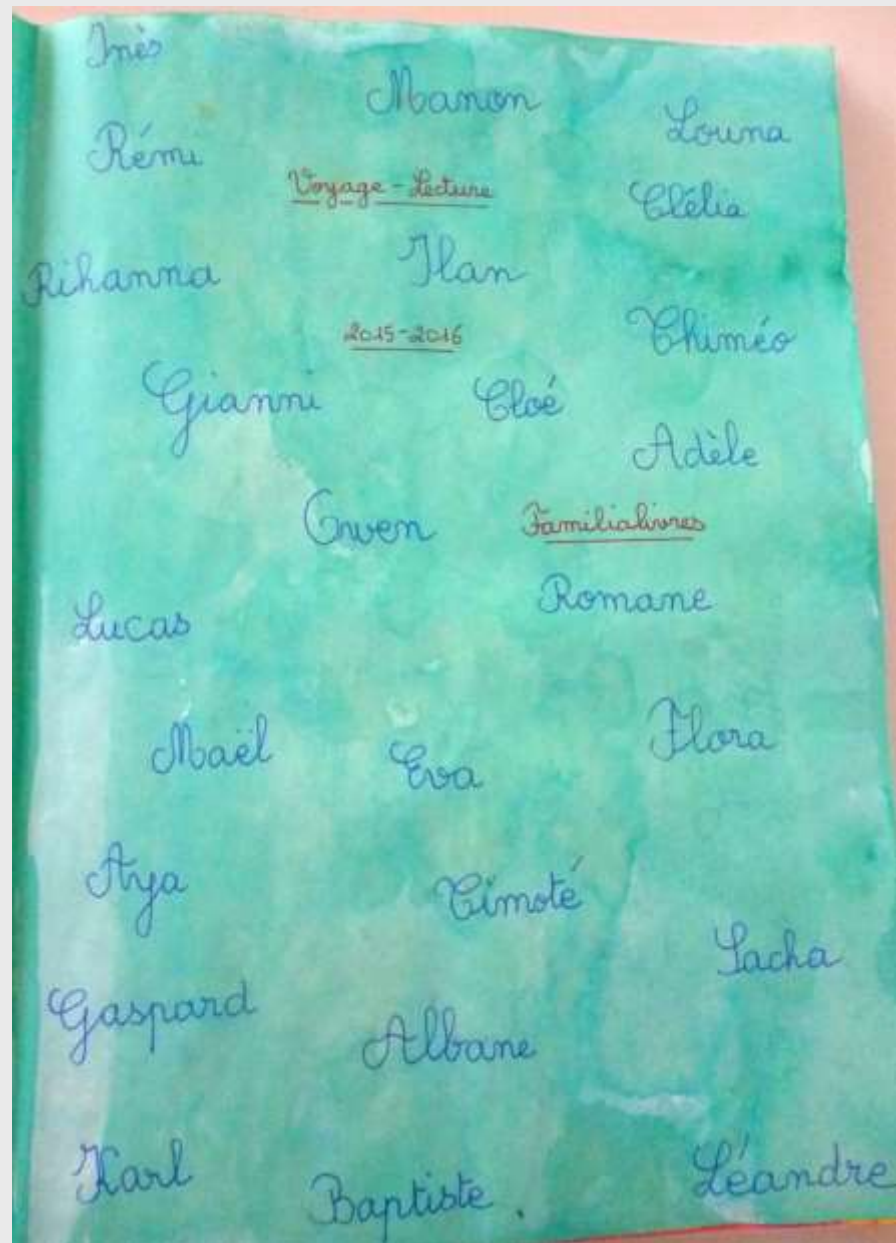 Inès
Manon
Louna
Rémi
Voyage-Lecture
Clélia
Rihanna
Ilan
2015-2016
Thiméo
Gianni
Cloé
Adèle
Gwen
Familialivres
Romane
Lucas
Maël
Eva
Flora
Aya
Timoté
Sacha
Gaspard
Albane
Karl
Baptiste.
Léandre